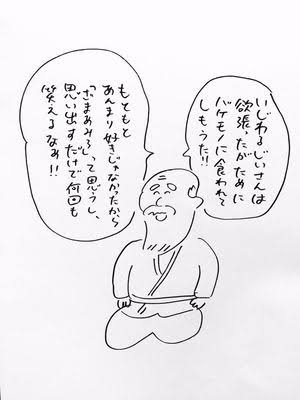 いじわるじいさんは
欲張ったがために
バケモノに食われて
しもうた!!
もともと
あんまり好きじゃなかったから
「ざまあみろ」って思うし、
思い出すだけで何回も
笑えるなぁ!!